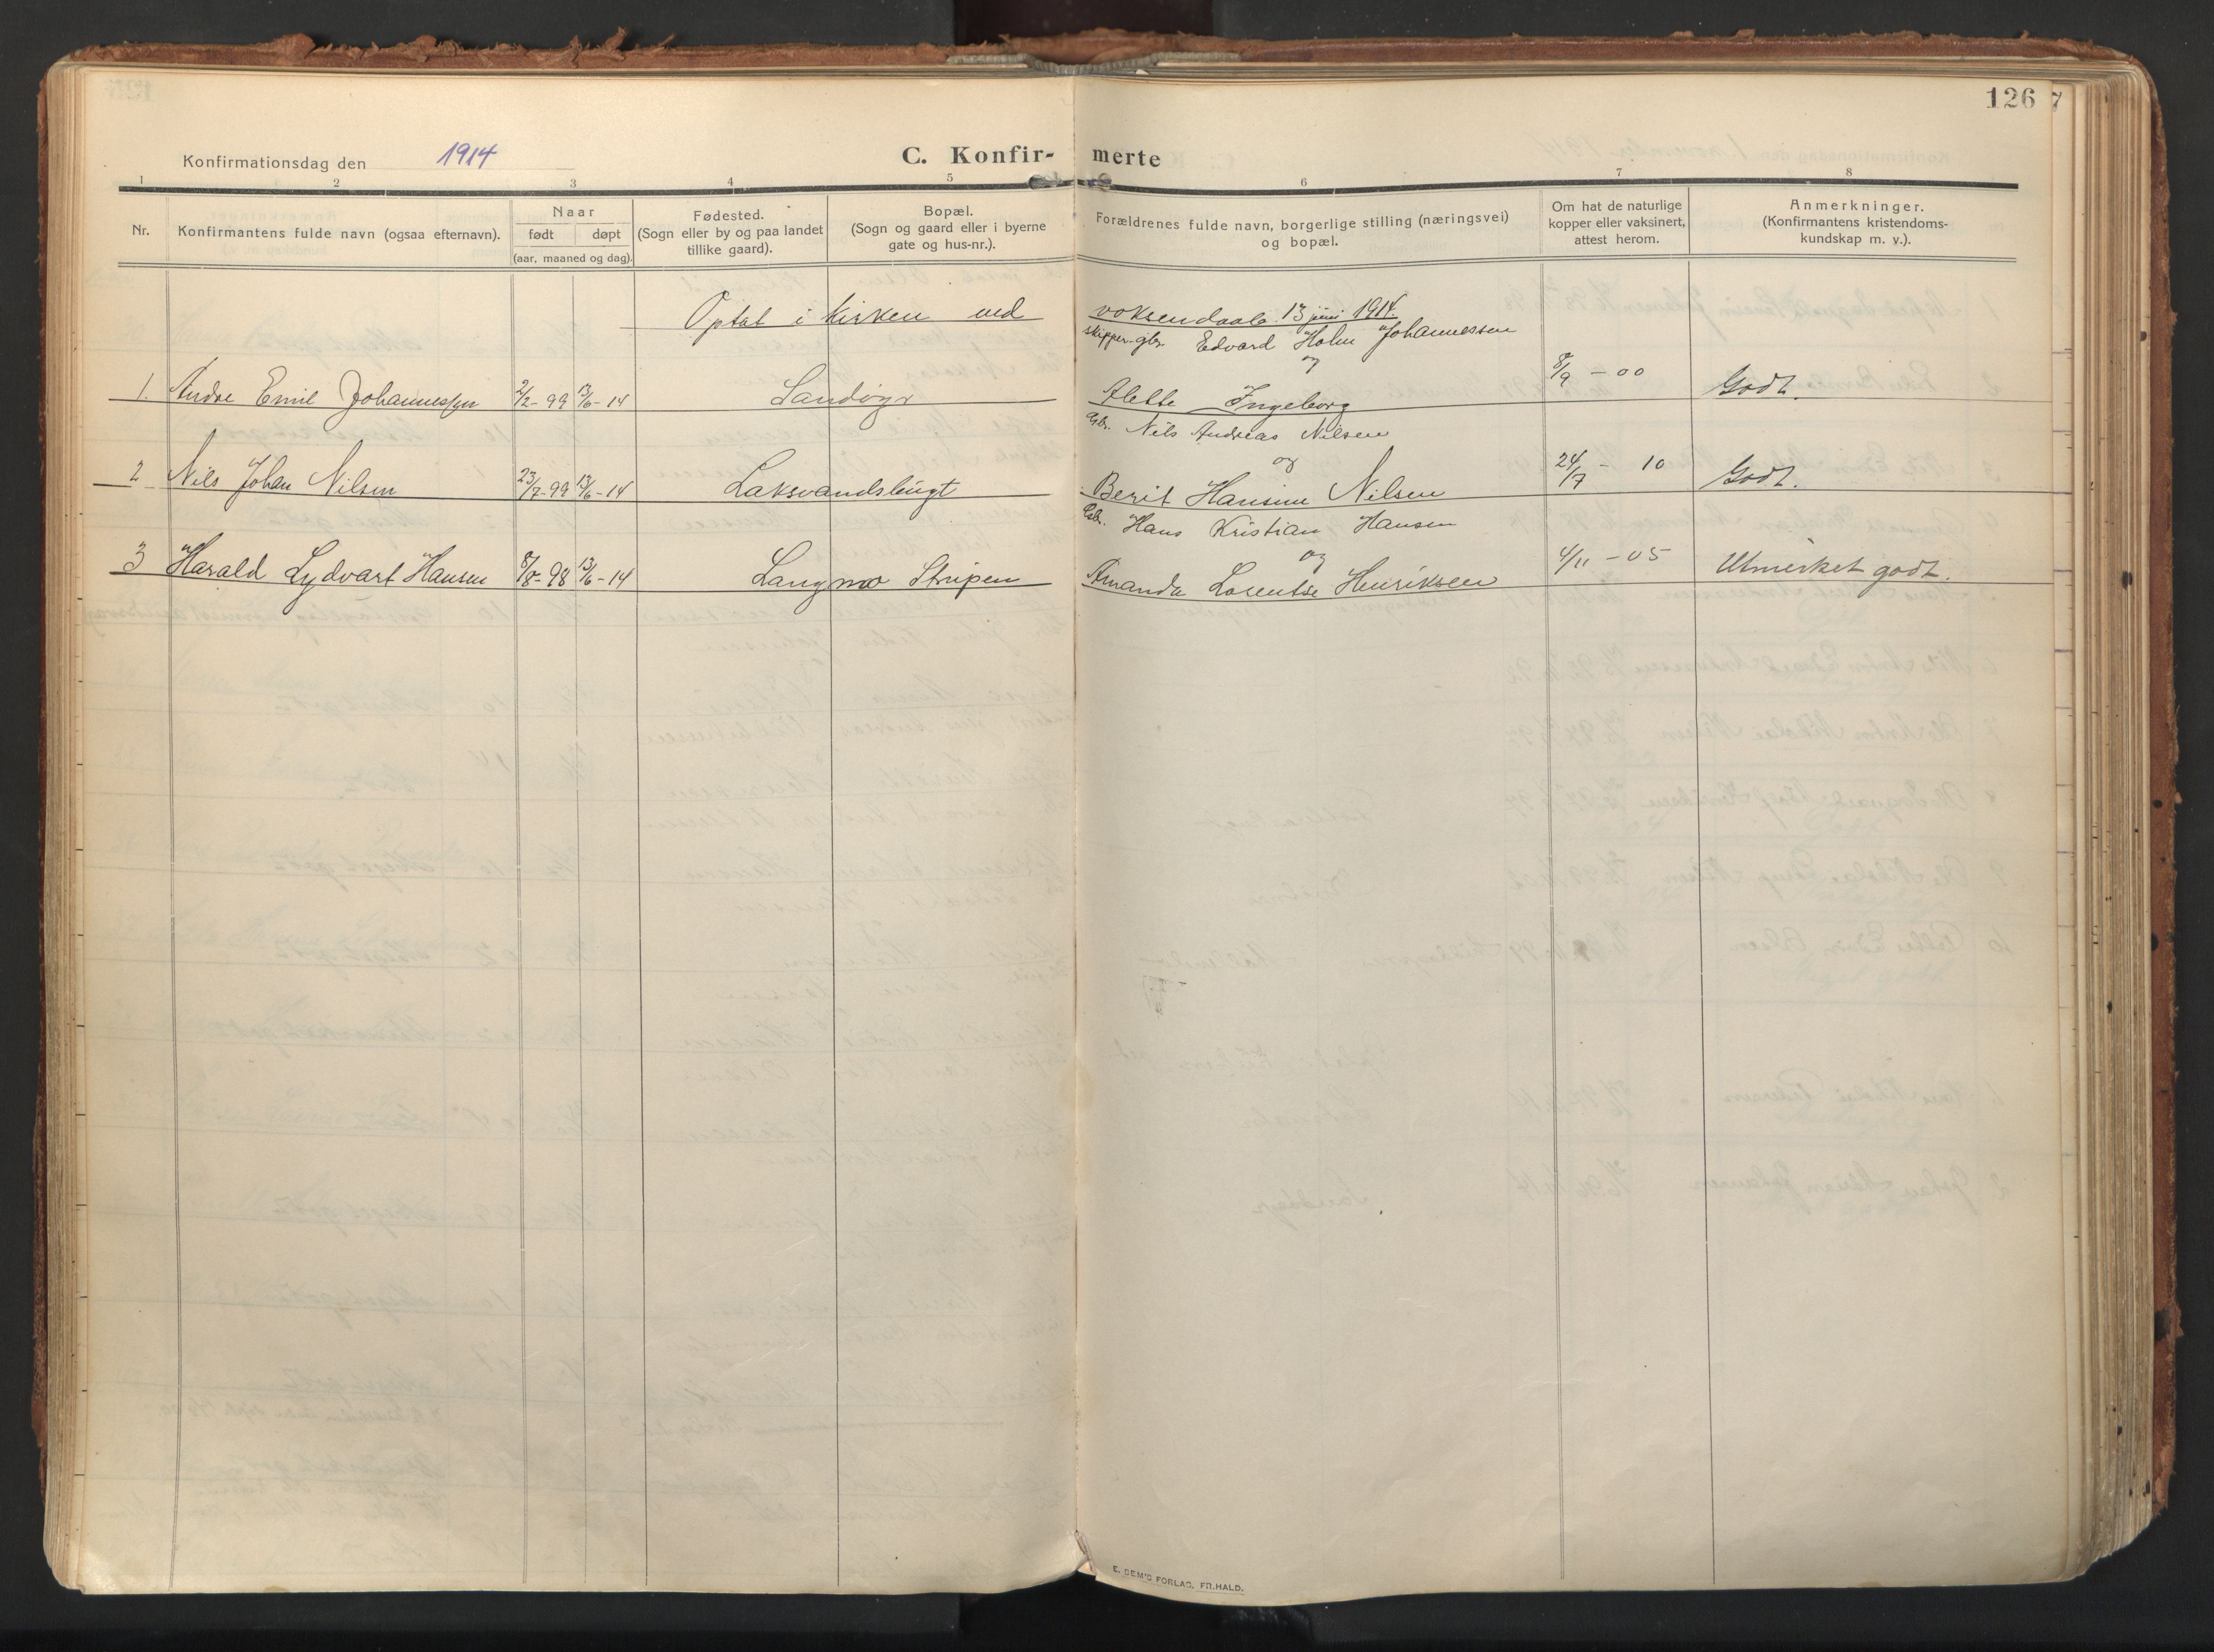 126 7
Konfirmationsdag den 1914
C. Konfir- merte
1 2 3 4 5 6 7 8
Nr.
Konfirmantens fulde navn (ogsaa efternavn).
Naar
født døpt
(aar, maaned og dag).
Fødested.
(Sogn eller by og paa landet
tillike gaard).
Bopæl.
(Sogn og gaard eller i byerne
gate og hus-nr.).
Forældrenes fulde navn, borgerlige stilling (næringsvei)
og bopæl.
Om hat de naturlige
kopper eller vaksinert,
attest herom.
Anmerkninger.
(Konfirmantens kristendoms-
kundskap m. v.).
Optat i kirken ved voksendaab 13 juni 1914.
skipper-gbr. Edvard Holm Johannessen
og
1. Andre Emil Johannessen 2/2-99 13/6-14 Sandøyr Alette Ingeborg 8/9 - 00 Godt.
Gbr. Nils Andreas Nilsen
og
2 Nils Johan Nilsen 23/7-99 13/6-14 Laksvandsbugt Berit Hansine Nilsen 24/7 - 10 Godt.
Gbr. Hans Kristian Hansen
og
3 Harald Lydvart Hansen 8/8-98 13/6-14 Langmo Stripen Amanda Henriksen 4/11 - 05 Utmerket godt.
E. SEM'S FORLAG, FR.HALD.